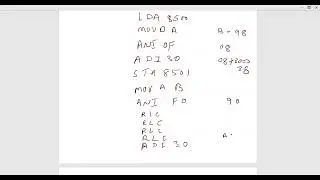 LDA 8500
MOV B A    B-98
ANI OF    08
ADI 30    08+3000
STA 8501    38
MOV A B
ANI FO    90
RLC
RLC
RLC
RLC    A-
ADI 30